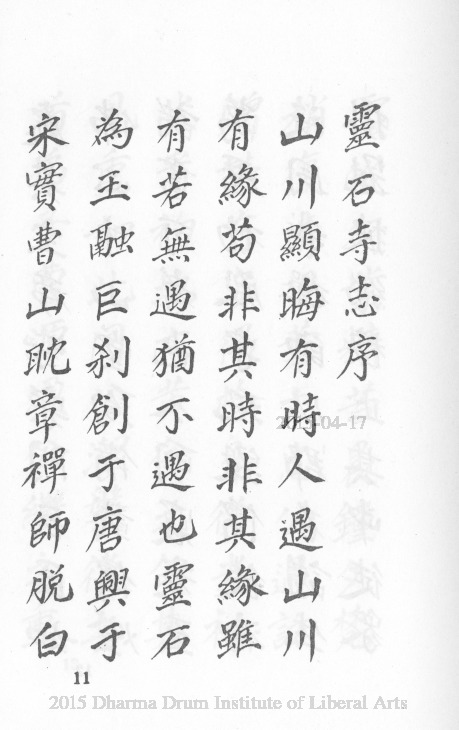 靈石寺志序
山川顯晦有時人遇山川
有緣苟非其時非其緣雖
有若無遇猶不遇也靈石
為玉融巨刹創于唐興于
宋實曹山耽章禪師脱白
11
2015 Dharma Drum Institute of Liberal Arts